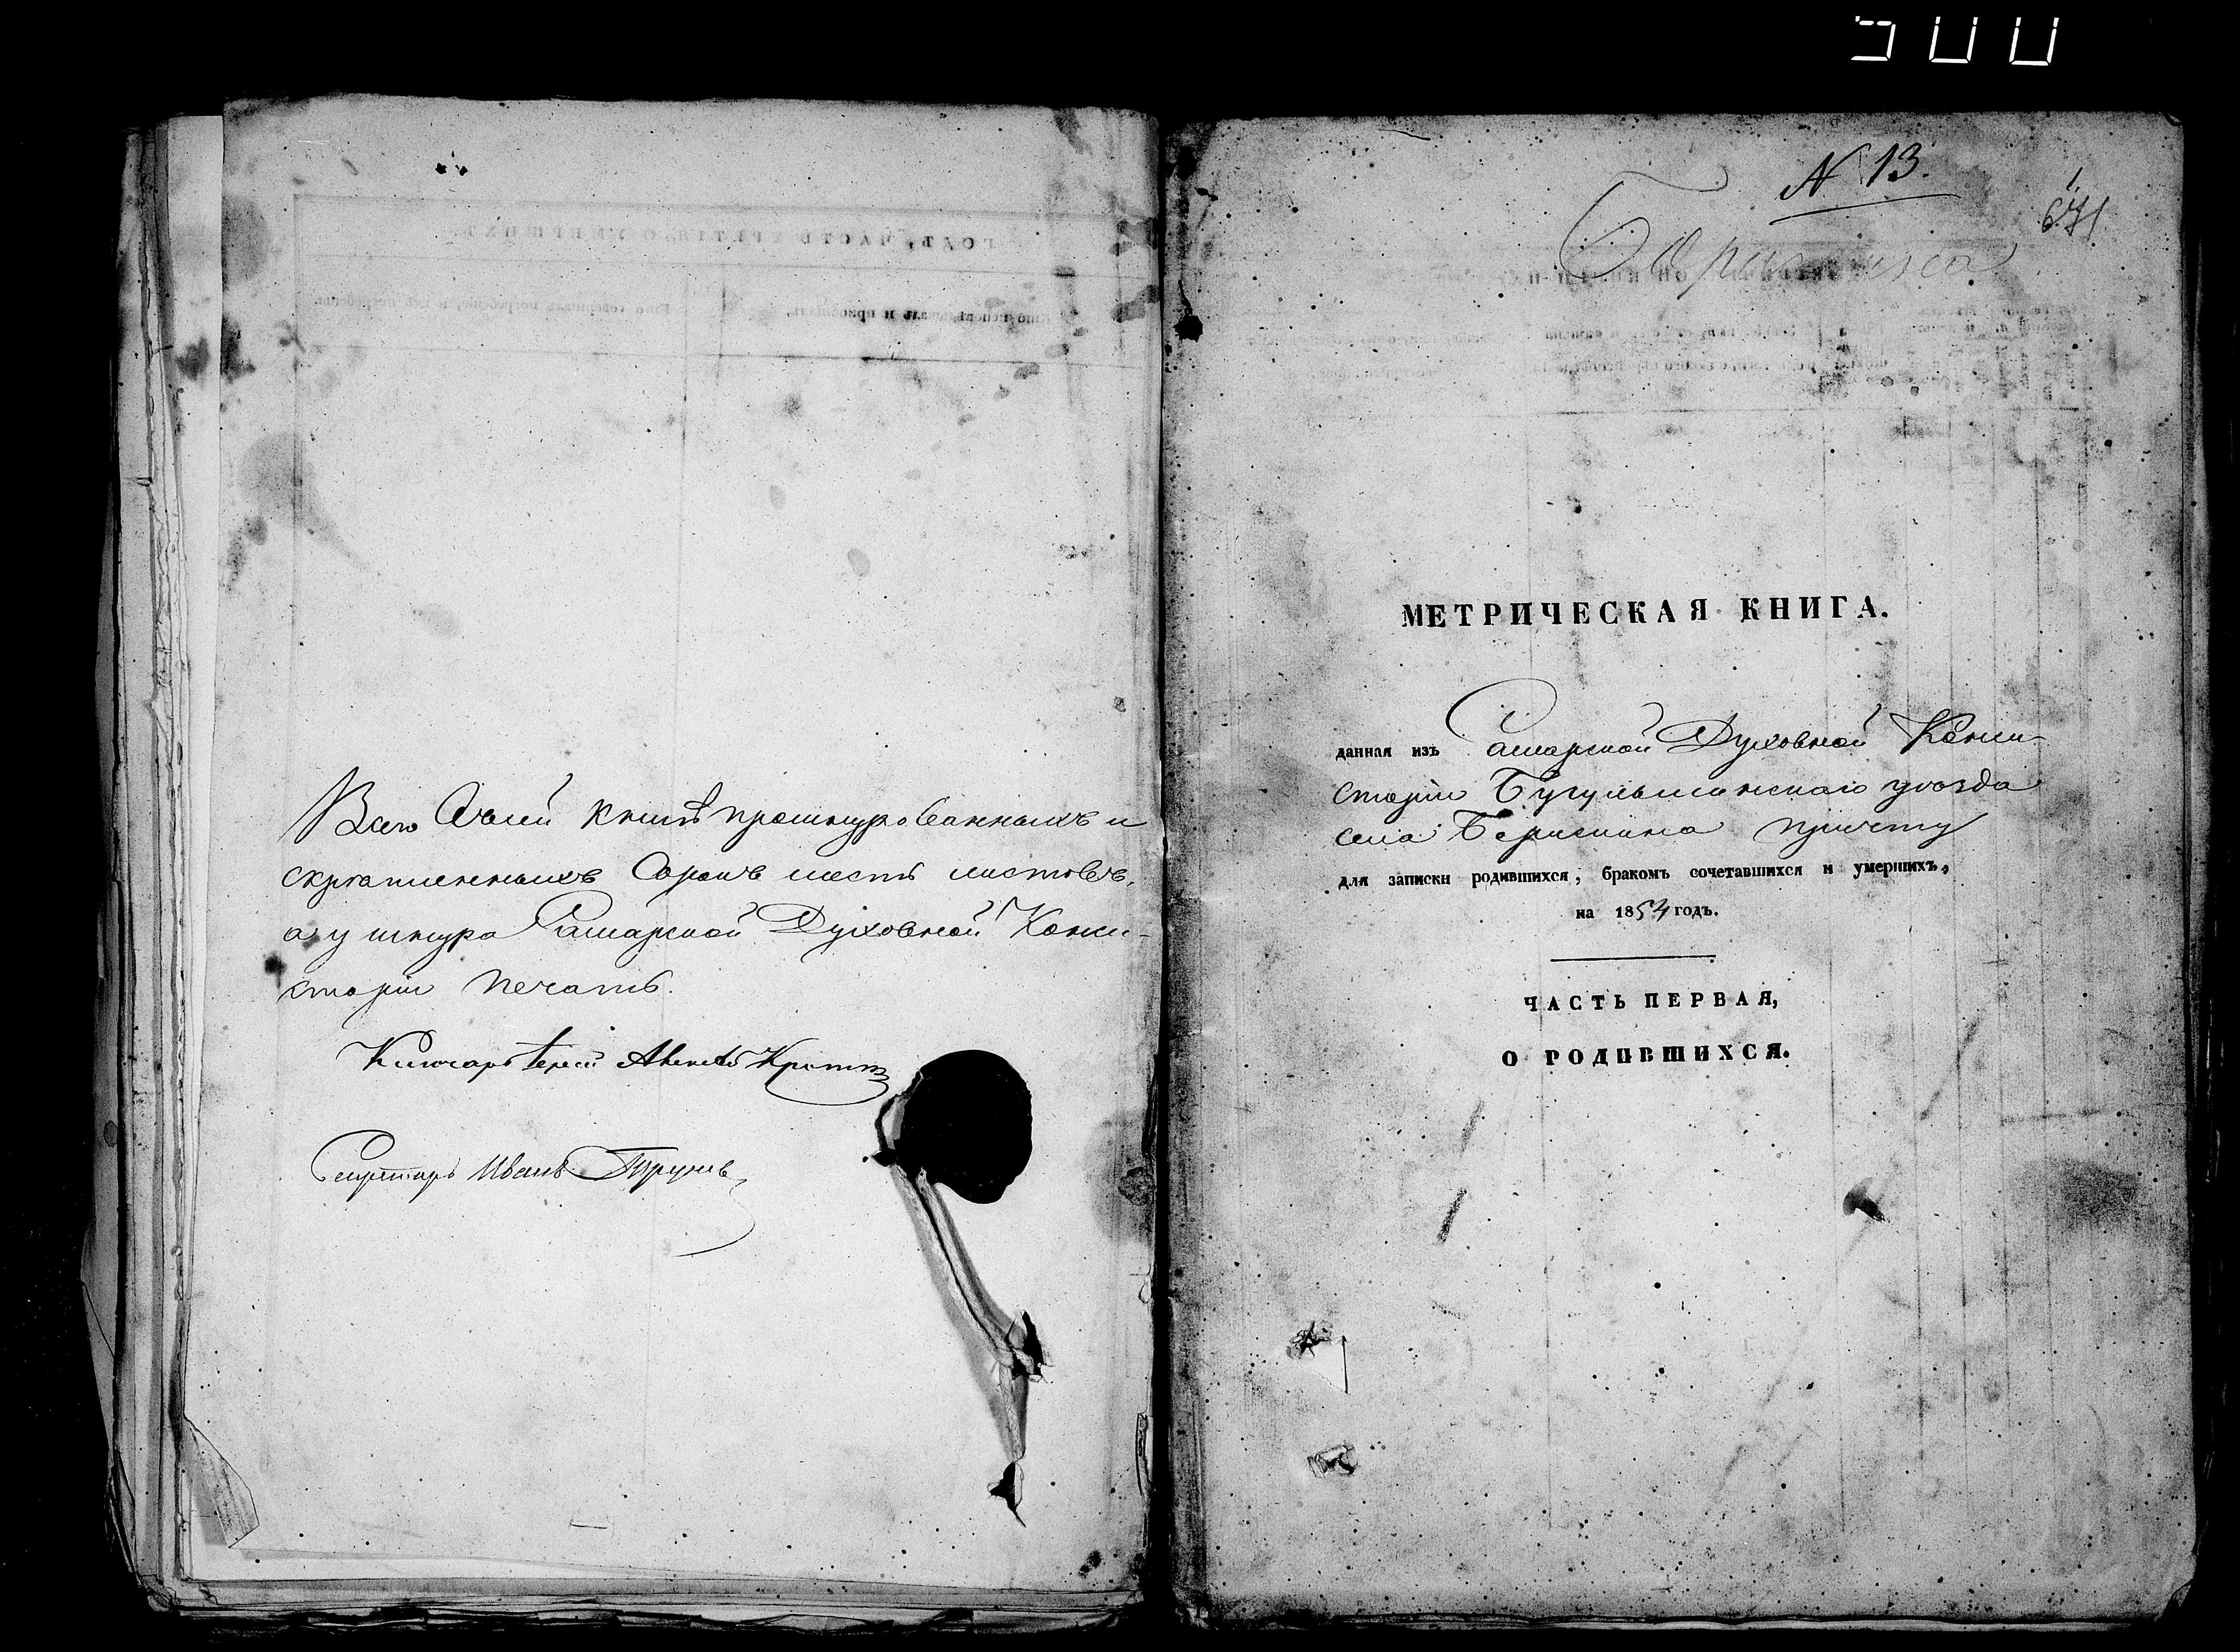 500
Всего въ сей книгѣ прошнурованныхъ и
скрѣпленныхъ Сорокъ шесть листовъ,
а у шнура Самарской Духовной Конси-
сторіи печать.
Ключарь Іерей Алексѣй
Секретарь Иванъ
N 13.
1.
671
МЕТРИЧЕСКАЯ КНИГА.
данная изъ Самарской Духовной Конси-
сторіи Бугульминскаго уѣзда
села причту
для записки родившихся, бракомъ сочетавшихся и умершихъ,
на 1854 годъ.
ЧАСТЬ ПЕРВАЯ,
О РОДИВШИХСЯ.